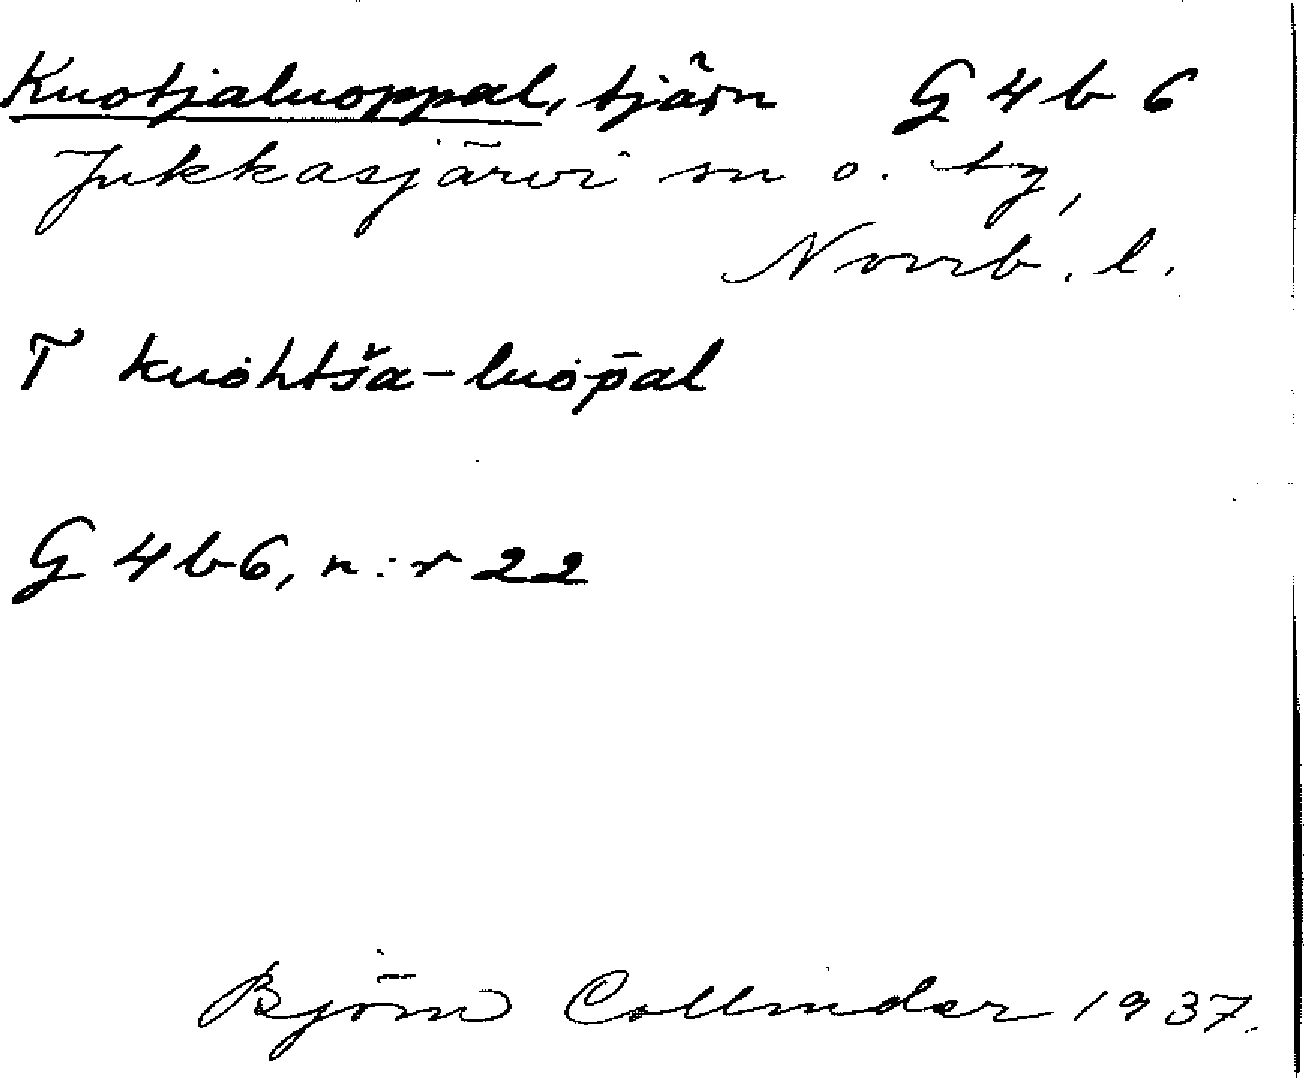 Kuotjaluoppal, tjärn G 4 b 6
Jukkasjärvi sn o. tg,
Norrb. l.
T kuȯhtša-luȯp̄al
G 4 b 6, n:r 22
Björn Collinder 1937.